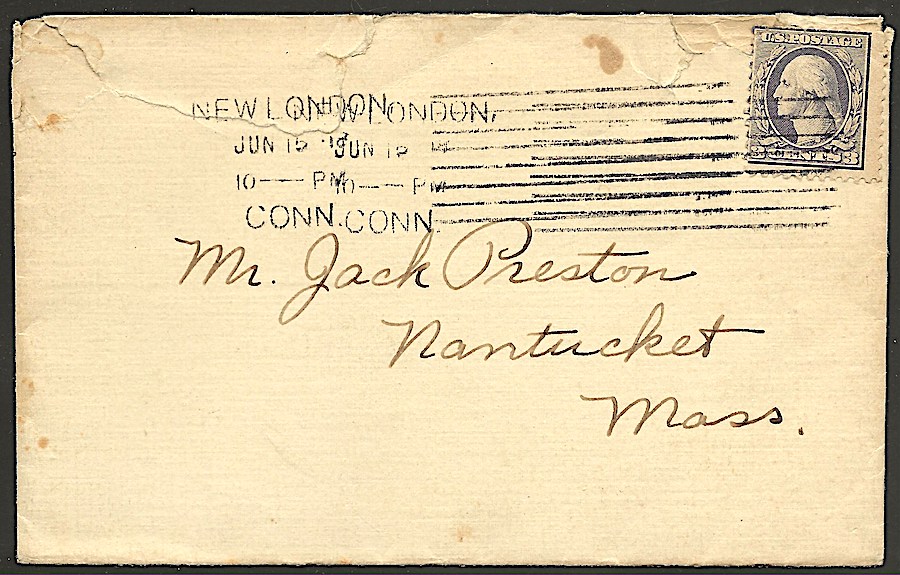 U.S. POSTAGE
3 CENTS 3
NEW LONDON NEW LONDON,
JUN 15 JUN 15
10 — PM 10 — PM
CONN. CONN.
Mr. Jack Preston
Nantucket
Mass.